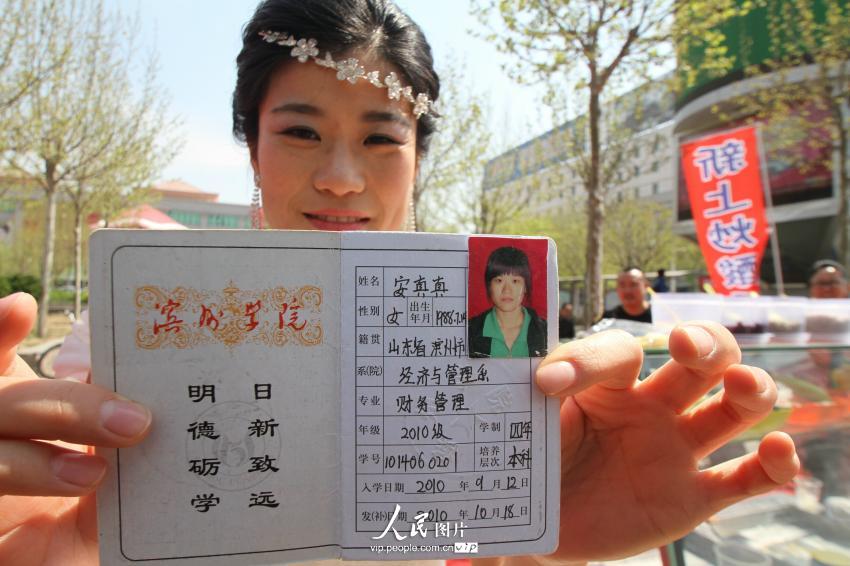 滨州学院
明德砺学
日新致远
姓名 安真真
性别 女 出生年月 1988.7.14
籍贯 山东省滨州市
系(院) 经济与管理系
专业 财务管理
年级 2010级 学制 四年
学号 1014060201 培养层次 本科
入学日期 2010 年 9 月 12 日
发(补)日期 2010 年 10 月 18 日
新上炒
人民图片
vip.people.com.cn vip